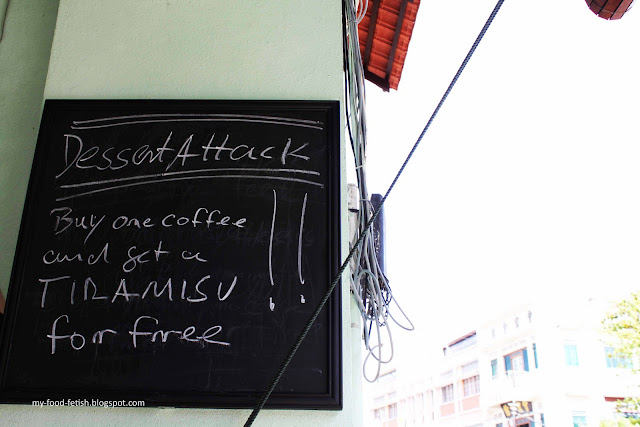 Dessert Attack
Buy one coffee
and get a
TIRAMISU !!
for free
my-food-fetish.blogspot.com